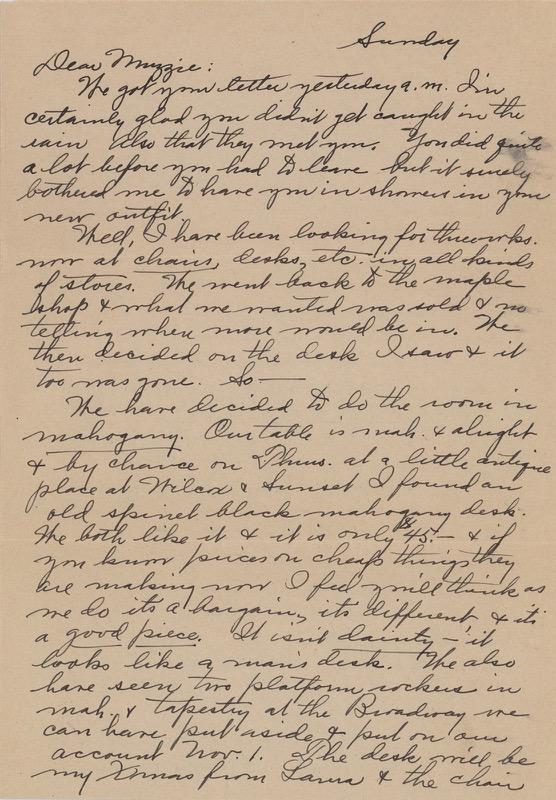 Sunday
Dear Muzzie:
We got your letter yesterday a.m. I'm
certainly glad you didn't get caught in the
rain also that they met you. You did quite
a lot before you had to leave but it surely
bothered me to have you in showers in your
new outfit.
Well, I have been looking for three wks.
now at chairs, desks, etc. in all kinds
of stores. We went back to the maple
shop & what we wanted was sold & no
telling when more would be in. We
then decided on the desk I saw & it
too was gone. So —
We have decided to do the room in
mahogany. Our table is mah. & alright
& by chance on Thurs. at a little antique
place at Wilcox & Sunset I found an
old spinet black mahogany desk.
We both like it & it is only $45.— & if
you know prices on cheap things they
are making now I feel you'll think as
we do its a bargain, its different & its
a good piece. It isn't dainty – it
looks like a man's desk. We also
have seen two platform rockers in
mah. & tapestry at the Broadway we
can have put aside & put on our
account Nov. 1. The desk will be
my Xmas from Laura & the chair